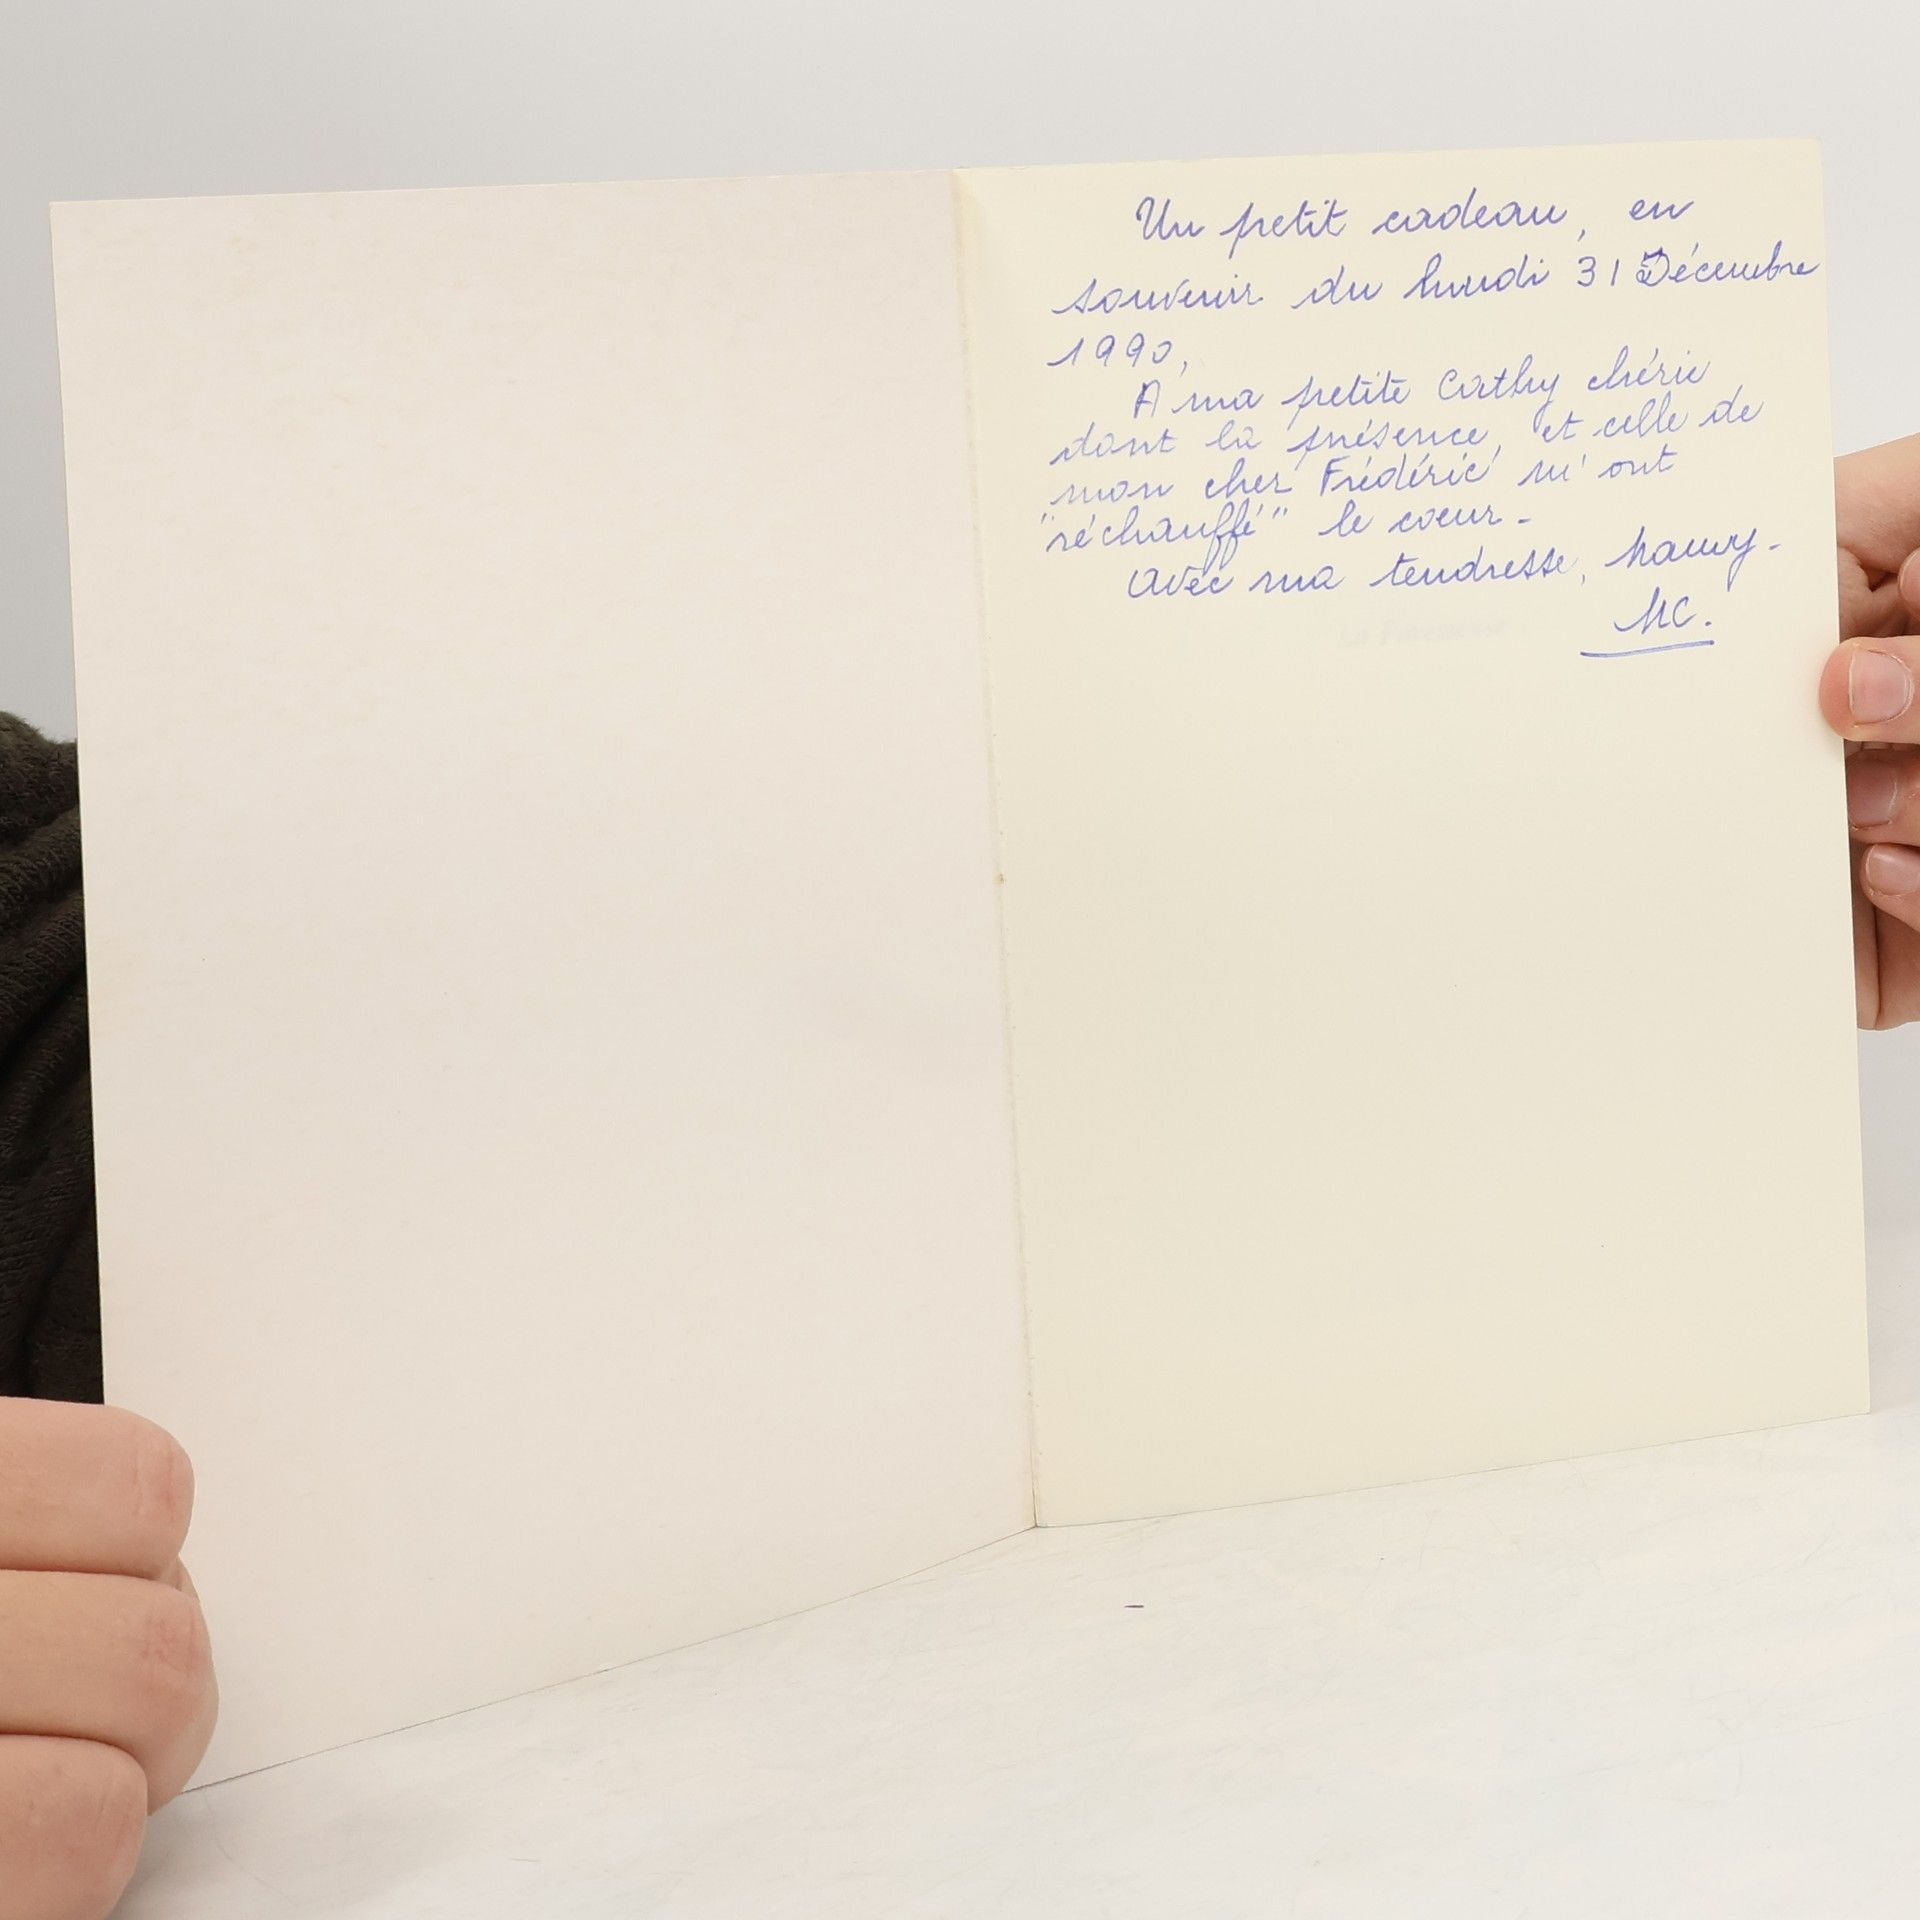 Un petit cadeau, en
souvenir du lundi 31 Décembre
1990,
A ma petite Cathy chérie
dont la présence, et celle de
mon cher Frédéric m'ont
"réchauffé" le coeur -
avec ma tendresse, Mamy -
MC.